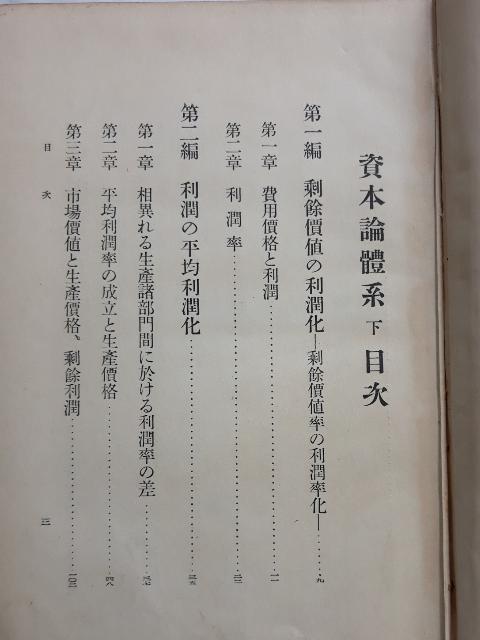 資本論體系 下 目次
第一編 剩餘價値の利潤化―剩餘價値率の利潤率化―……九
第一章 費用價格と利潤……一一
第二章 利潤率……三三
第二編 利潤の平均利潤化……三五
第一章 相異れる生產諸部門間に於ける利潤率の差……三七
第二章 平均利潤率の成立と生產價格……四八
第三章 市場價値と生產價格、剩餘利潤……一〇三
目次